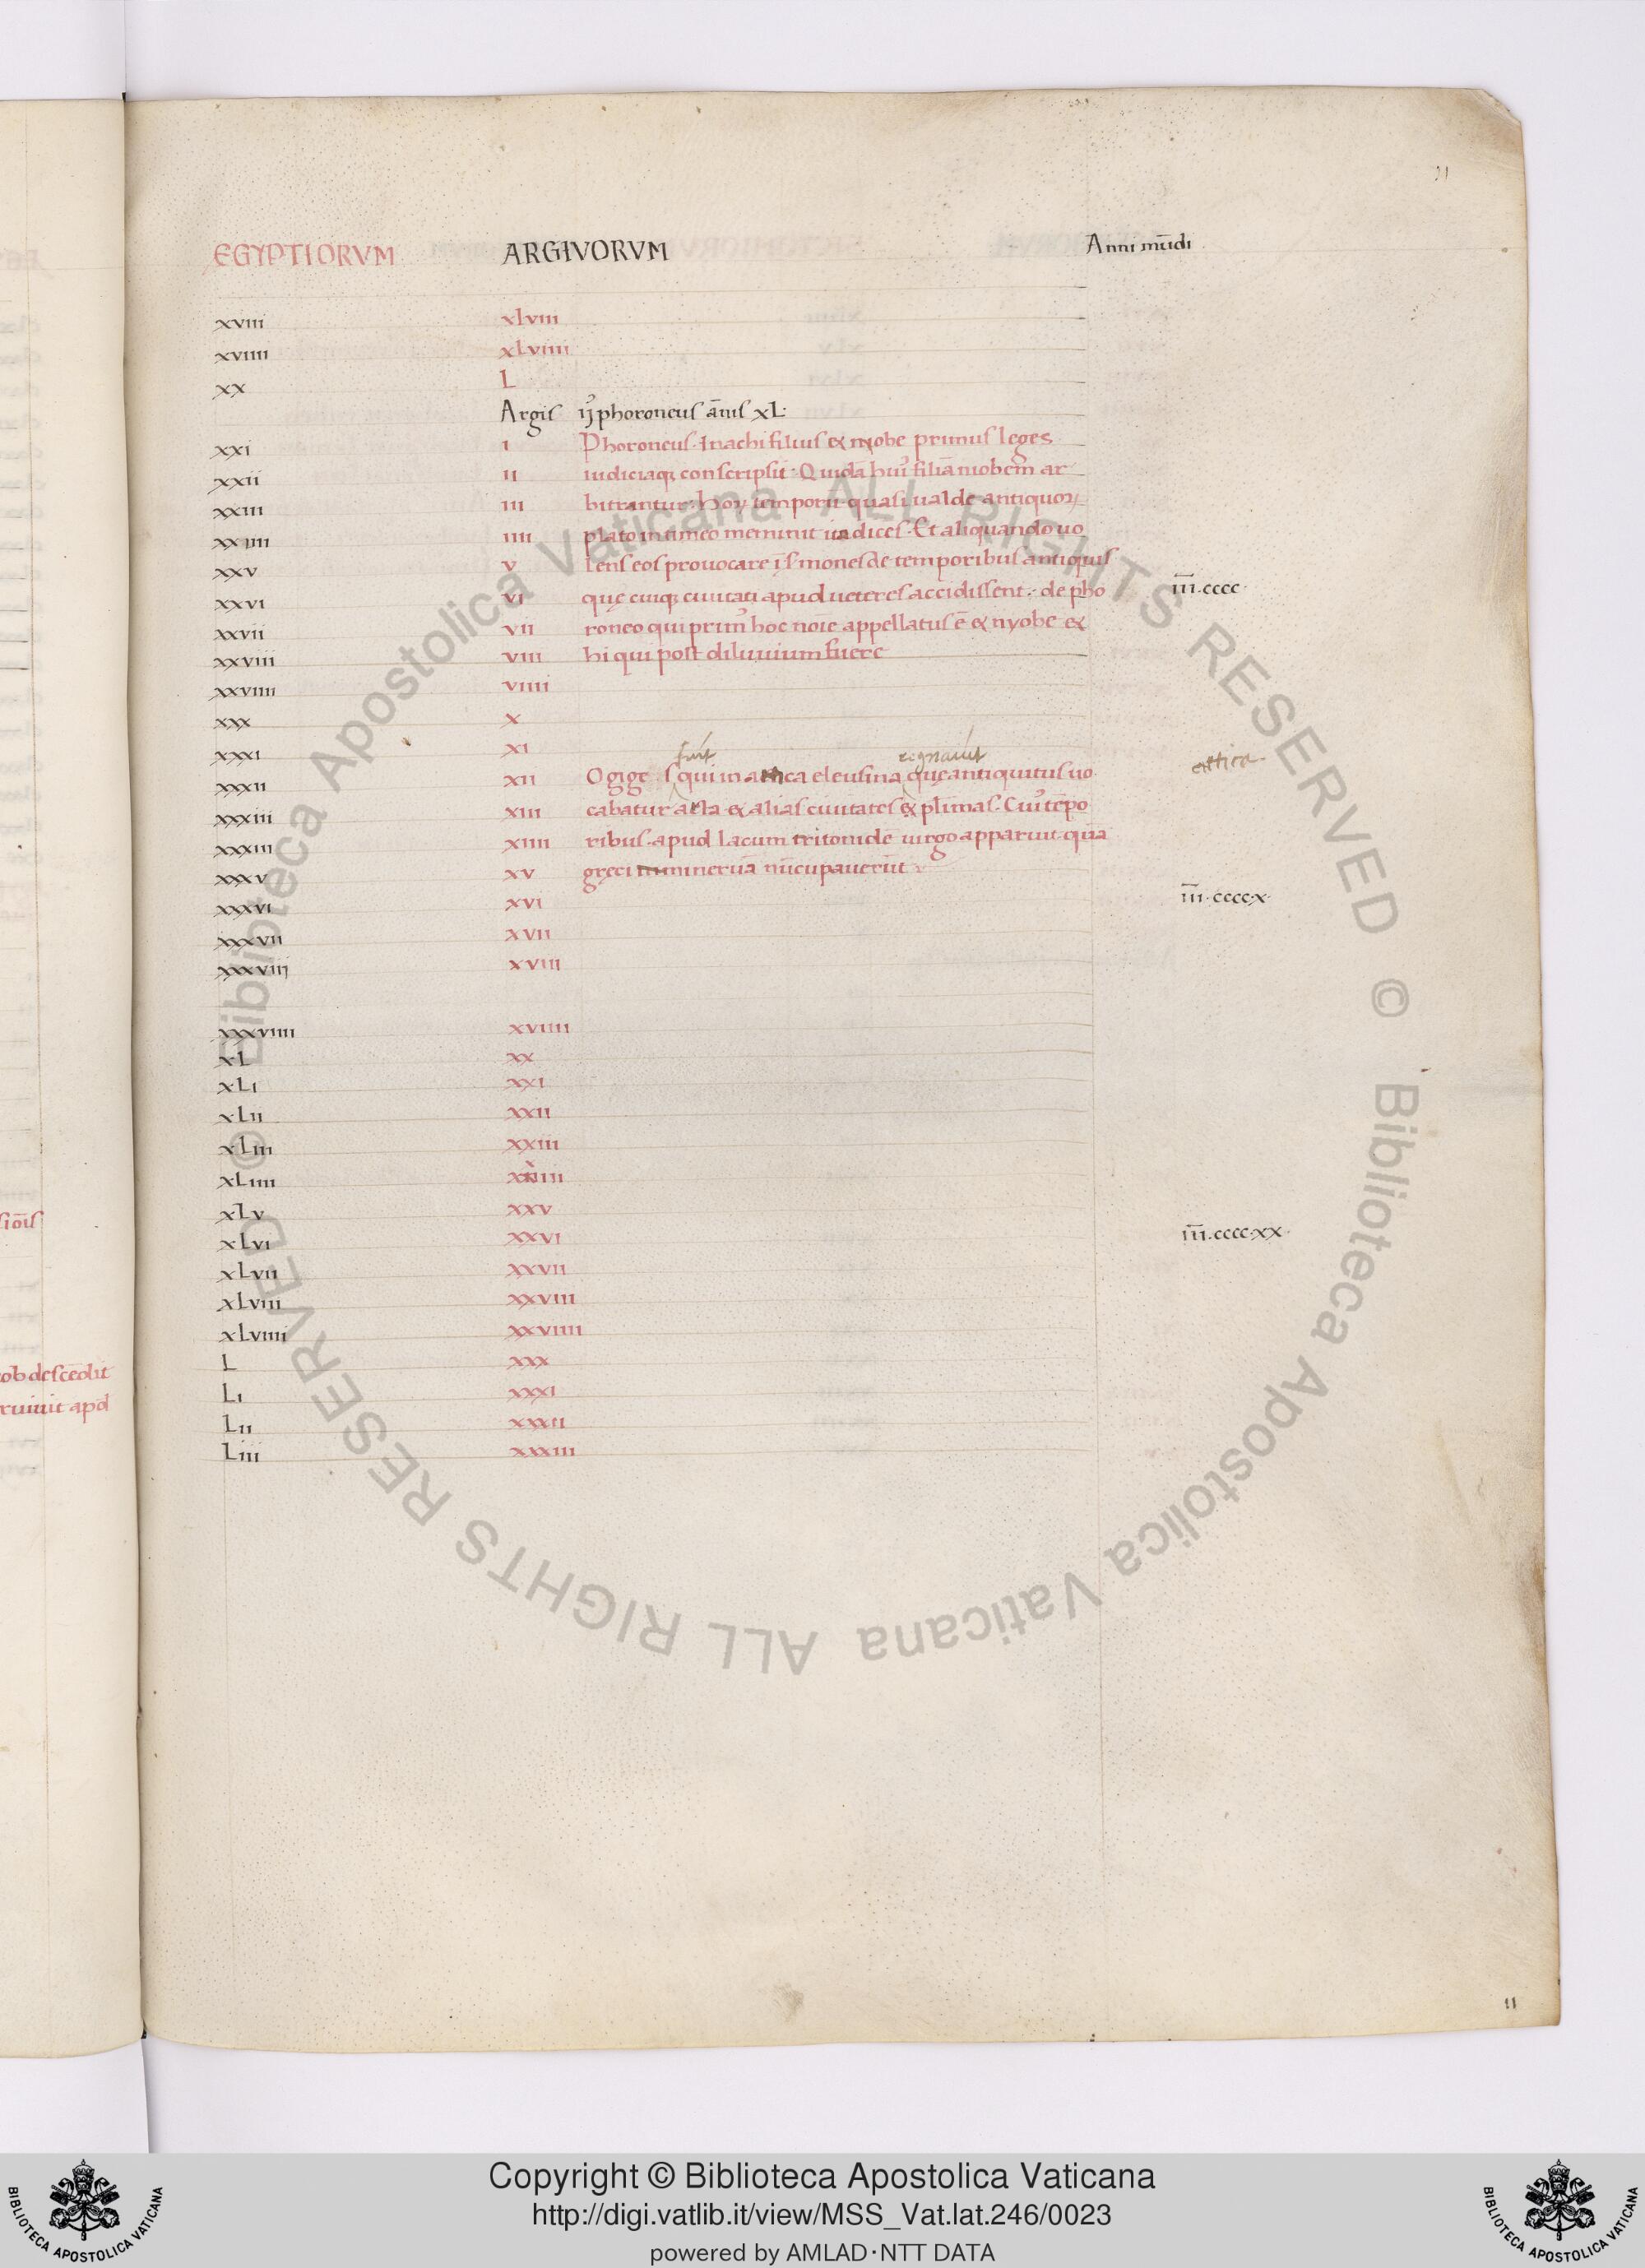 11
EGYPTIORVM ARGIVORVM Anni mūdi
xviii xlviii
xviiii xlviiii
xx L
Argis ij phoroneus ānis xL
xxi i Phoroneus. Inachi filius & nyobe primus leges
xxii ii iudiciaq; conscripsit. Quidā hui' filiā niobem ar
xxiii iii bitrantur. Hoꝝ temporū quasi ualde antiquoꝝ
xxiiii iiii plato in timeo meminit indices. Et aliquando uo
xxv v lens eos prouocare ī smones de temporibus antiquis
xxvi vi quę cuiq; ciuitati apud ueteres accidissent. de pho iii.cccc
xxvii vii roneo qui prim' hoc noīe appellatus ē & nyobe &
xxviii viii hi qui post diluuium fuere
xxviiii viiii
xxx x
xxxi xi
fuit regnauit attica
xxxii xii Ogiges qui in attica eleusina quę antiquitus uo
xxxiii xiii cabatur acta & alias ciuitates & plīmas. Cui' tēpo
xxxiiii xiiii ribus. apud lacum tritonidē uirgo apparuit. quā
xxxv xv gręci mineruā nūcupauerūt
xxxvi xvi iii.cccc.x.
xxxvii xvii
xxxviii xviii
xxxviiii xviiii
xL xx
xLi xxi
xLii xxii
xLiii xxiii
xLiiii xxiiii
xLv xxv
xLvi xxvi iii.cccc.xx.
xLvii xxvii
xLviii xxviii
xLviiii xxviiii
L xxx
Li xxxi
Lii xxxii
Liii xxxiii
sioīs
cob descēdit
ruiuit apd
11
© Biblioteca Apostolica Vaticana ALL RIGHTS RESERVED © Biblioteca Apostolica Vaticana ALL RIGHTS RESERVED
Copyright © Biblioteca Apostolica Vaticana
http://digi.vatlib.it/view/MSS_Vat.lat.246/0023
powered by AMLAD·NTT DATA
BIBLIOTECA APOSTOLICA VATICANA
BIBLIOTECA APOSTOLICA VATICANA